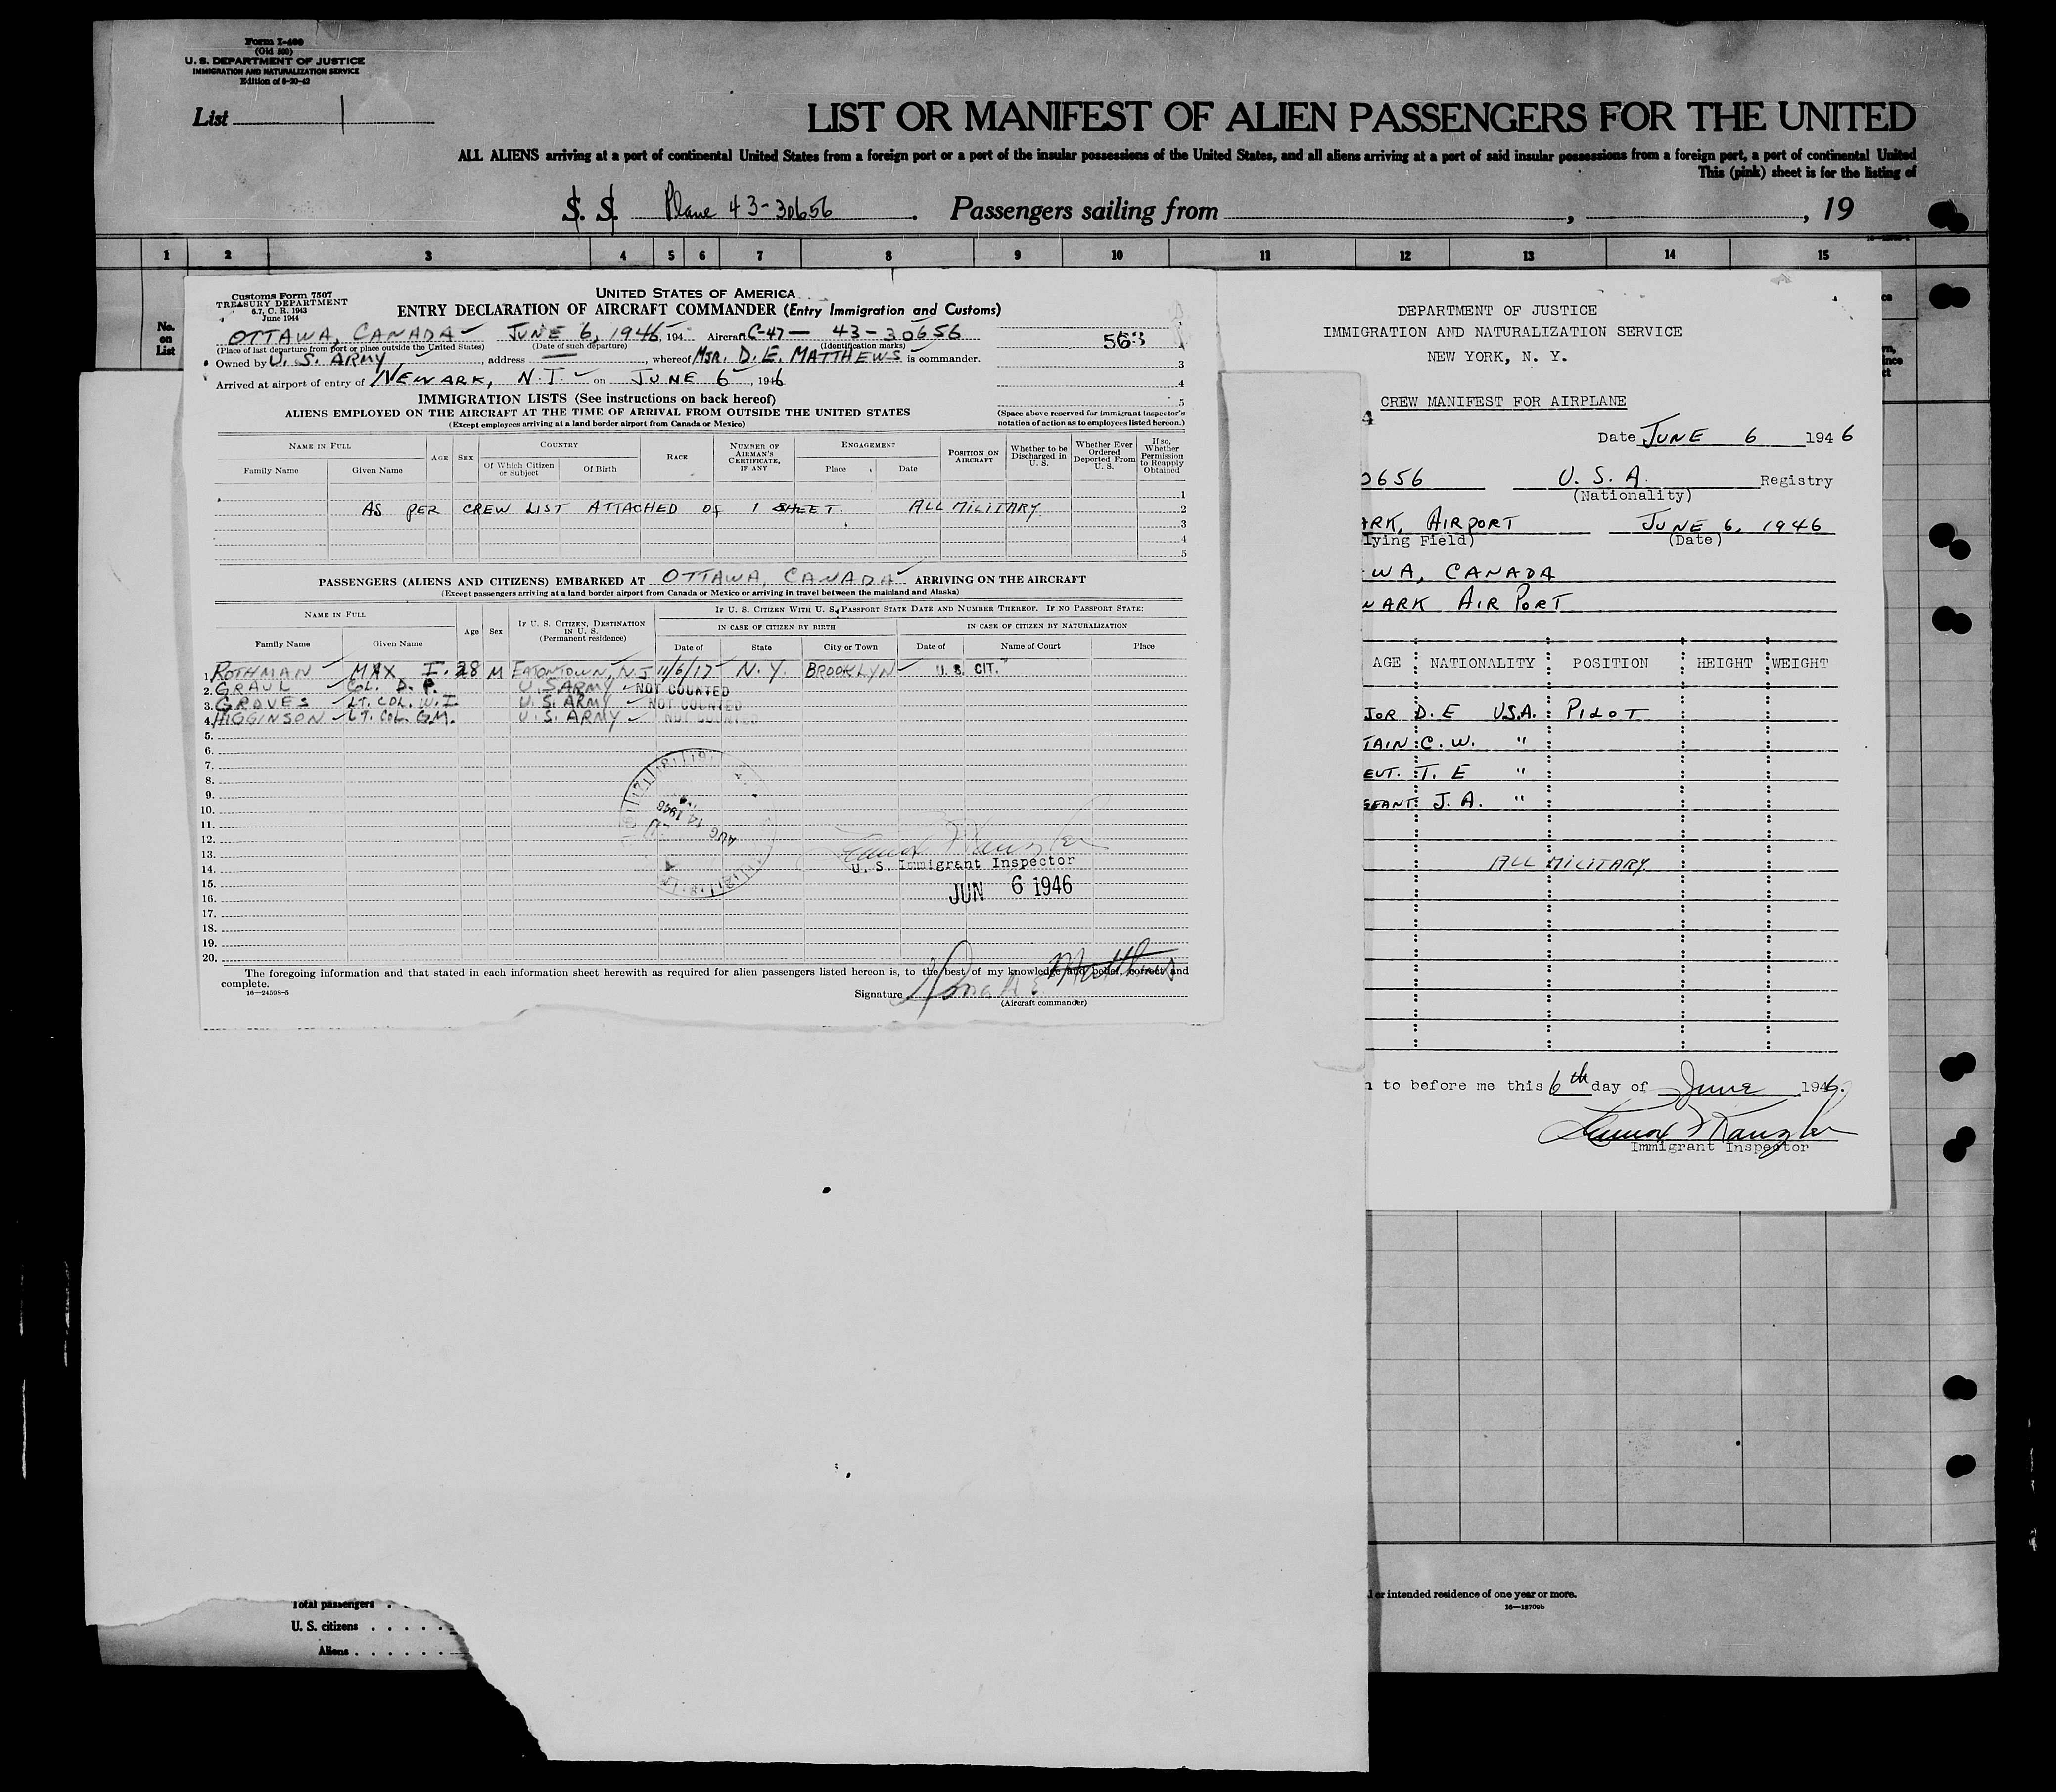 Form I-400
(Old 500)
U. S. DEPARTMENT OF JUSTICE
IMMIGRATION AND NATURALIZATION SERVICE
Edition of 6-20-42
List 1
LIST OR MANIFEST OF ALIEN PASSENGERS FOR THE UNITED
ALL ALIENS arriving at a port of continental United States from a foreign port or a port of the insular possessions of the United States, and all aliens arriving at a port of said insular possessions from a foreign port, a port of continental United
This (pink) sheet is for the listing of
S. S. Plane 43-30656 . Passengers sailing from , , 19
1 2 3 4 5 6 7 8 9 10 11 12 13 14 15
No. on List
Customs Form 7507
TREASURY DEPARTMENT
6.7, C. R. 1943
June 1944
UNITED STATES OF AMERICA
ENTRY DECLARATION OF AIRCRAFT COMMANDER (Entry Immigration and Customs)
OTTAWA, CANADA JUNE 6, 1946, 194 Aircraft C-47 — 43-30656
(Place of last departure from port or place outside the United States) (Date of such departure) (Identification marks)
Owned by U. S. ARMY, address —, whereof MJR. D. E. MATTHEWS is commander.
Arrived at airport of entry of NEWARK, N.J. on JUNE 6, 1946
3
4
5
IMMIGRATION LISTS (See instructions on back hereof)
ALIENS EMPLOYED ON THE AIRCRAFT AT THE TIME OF ARRIVAL FROM OUTSIDE THE UNITED STATES
(Except employees arriving at a land border airport from Canada or Mexico)
(Space above reserved for immigrant inspector's notation of action as to employees listed hereon.)
NAME IN FULL AGE SEX COUNTRY RACE NUMBER OF AIRMAN'S CERTIFICATE, IF ANY ENGAGEMENT POSITION ON AIRCRAFT Whether to be Discharged in U. S. Whether Ever Ordered Deported From U. S. If so, Whether Permission to Reapply Obtained
Family Name Given Name Of Which Citizen or Subject Of Birth Place Date
1
AS PER CREW LIST ATTACHED OF 1 SHEET. ALL MILITARY 2
3
4
5
PASSENGERS (ALIENS AND CITIZENS) EMBARKED AT OTTAWA, CANADA ARRIVING ON THE AIRCRAFT
(Except passengers arriving at a land border airport from Canada or Mexico or arriving in travel between the mainland and Alaska)
NAME IN FULL Age Sex IF U. S. CITIZEN, DESTINATION IN U. S. (Permanent residence) IF U. S. CITIZEN WITH U. S. PASSPORT STATE DATE AND NUMBER THEREOF. IF NO PASSPORT STATE:
IN CASE OF CITIZEN BY BIRTH IN CASE OF CITIZEN BY NATURALIZATION
Family Name Given Name Date of State City or Town Date of Name of Court Place
1. ROTHMAN MAX I. 28 M EATONTOWN, NJ 11/6/17 N.Y. BROOKLYN U. S. CIT.
2. GRAUL COL. D. P. U. S ARMY NOT COUNTED
3. GROVES LT. COL. W. I U. S. ARMY NOT COUNTED
4. HIGGINSON LT. COL. G.M. U. S. ARMY NOT COUNTED
5.
6.
7.
8.
9.
10.
11.
12.
13.
14.
15.
16.
17.
18.
19.
20.
AUG 14 1946
U. S. Immigrant Inspector
JUN 6 1946
The foregoing information and that stated in each information sheet herewith as required for alien passengers listed hereon is, to the best of my knowledge and belief, correct and
complete.
16—24598-5
Signature Donald E. Matthews
(Aircraft commander)
DEPARTMENT OF JUSTICE
IMMIGRATION AND NATURALIZATION SERVICE
NEW YORK, N. Y.
CREW MANIFEST FOR AIRPLANE
Date JUNE 6 1946
0656 U. S. A. Registry
(Nationality)
ARK, AIRPORT JUNE 6, 1946
lying Field) (Date)
WA, CANADA
WARK AIR PORT
AGE NATIONALITY POSITION HEIGHT WEIGHT
JOR D. E USA. PILOT
TAIN C. W. "
EUT. T. E "
GEANT J. A. "
ALL MILITARY
n to before me this 6th day of June 1946.
Immigrant Inspector
Total passengers . .
U. S. citizens . . . . .
Aliens . . . . . .
l or intended residence of one year or more.
16—18709b